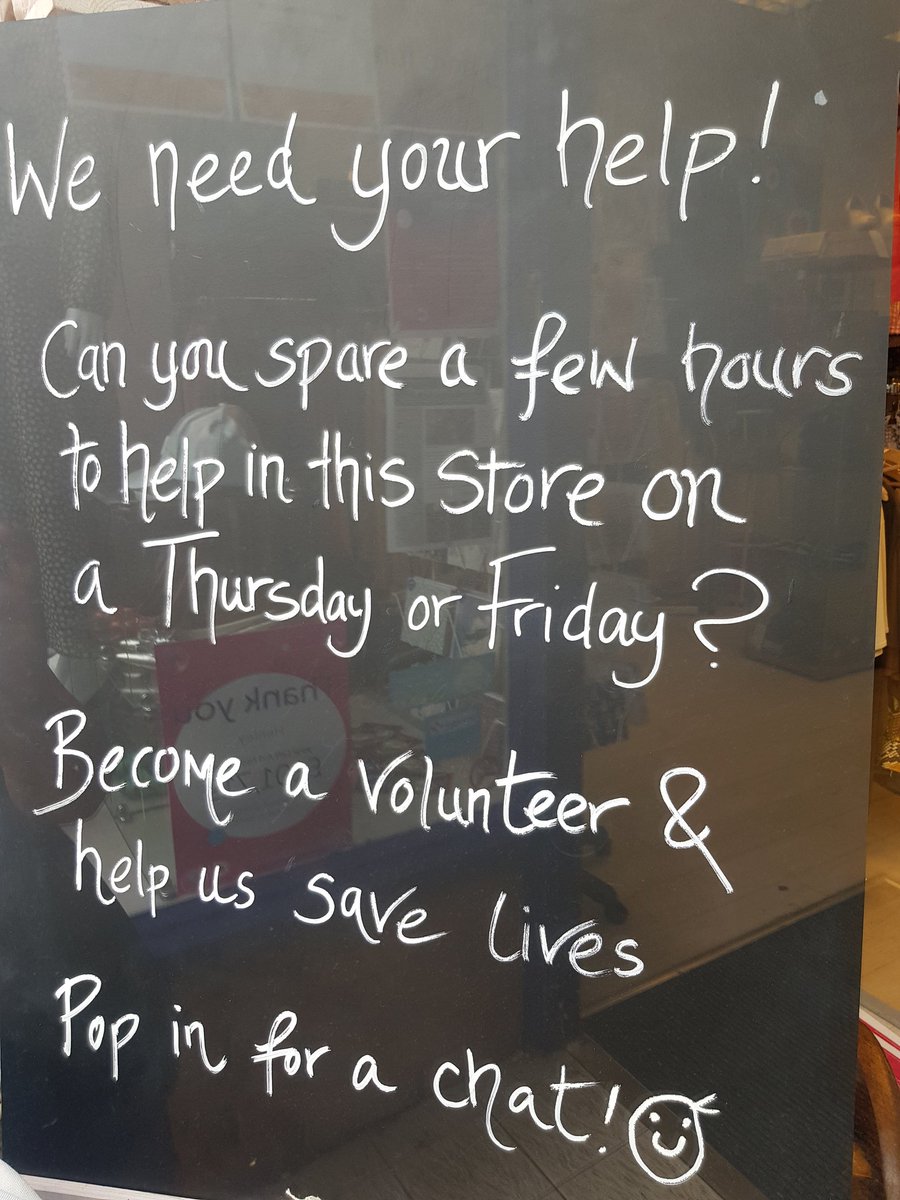 We need your help!
Can you spare a few hours
to help in this store on
a Thursday or Friday?
Become a volunteer &
help us save lives
Pop in for a chat!
hank you